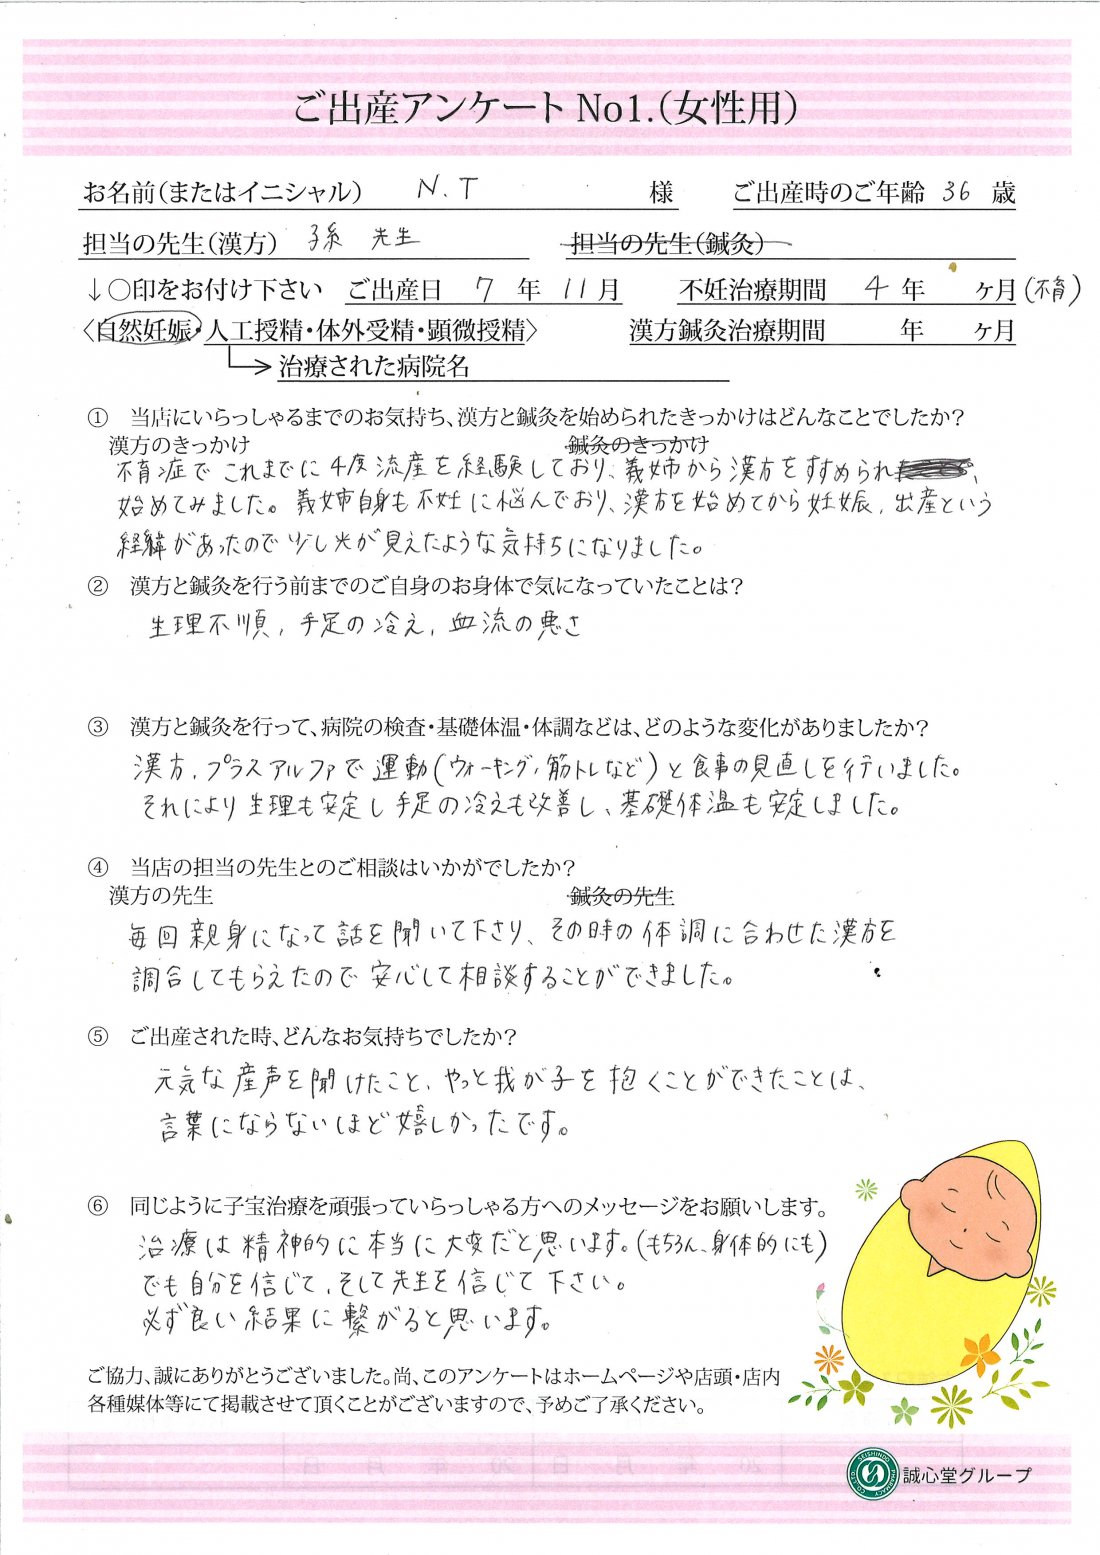 ご出産アンケート No1.(女性用)
お名前(またはイニシャル) N.T 様 ご出産時のご年齢 36 歳
担当の先生(漢方) 孫 先生 担当の先生(鍼灸)
↓○印をお付け下さい ご出産日 7 年 11 月 不妊治療期間 4 年 ヶ月(不育)
〈自然妊娠・人工授精・体外受精・顕微授精〉 漢方鍼灸治療期間 年 ヶ月
治療された病院名
① 当店にいらっしゃるまでのお気持ち、漢方と鍼灸を始められたきっかけはどんなことでしたか?
漢方のきっかけ 鍼灸のきっかけ
不育症でこれまでに4度流産を経験しており、義姉から漢方をすすめられ、
始めてみました。義姉自身も不妊に悩んでおり、漢方を始めてから妊娠、出産という
経緯があったので少し光が見えたような気持ちになりました。
② 漢方と鍼灸を行う前までのご自身のお身体で気になっていたことは?
生理不順、手足の冷え、血流の悪さ
③ 漢方と鍼灸を行って、病院の検査・基礎体温・体調などは、どのような変化がありましたか?
漢方、プラスアルファで運動(ウォーキング、筋トレなど)と食事の見直しを行いました。
それにより生理も安定し手足の冷えも改善し、基礎体温も安定しました。
④ 当店の担当の先生とのご相談はいかがでしたか?
漢方の先生 鍼灸の先生
毎回親身になって話を聞いて下さり、その時の体調に合わせた漢方を
調合してもらえたので安心して相談することができました。
⑤ ご出産された時、どんなお気持ちでしたか?
元気な産声を聞けたこと、やっと我が子を抱くことができたことは、
言葉にならないほど嬉しかったです。
⑥ 同じように子宝治療を頑張っていらっしゃる方へのメッセージをお願いします。
治療は精神的に本当に大変だと思います。(もちろん、身体的にも)
でも自分を信じて、そして先生を信じて下さい。
必ず良い結果に繋がると思います。
ご協力、誠にありがとうございました。尚、このアンケートはホームページや店頭・店内
各種媒体等にて掲載させて頂くことがございますので、予めご了承ください。
誠心堂グループ